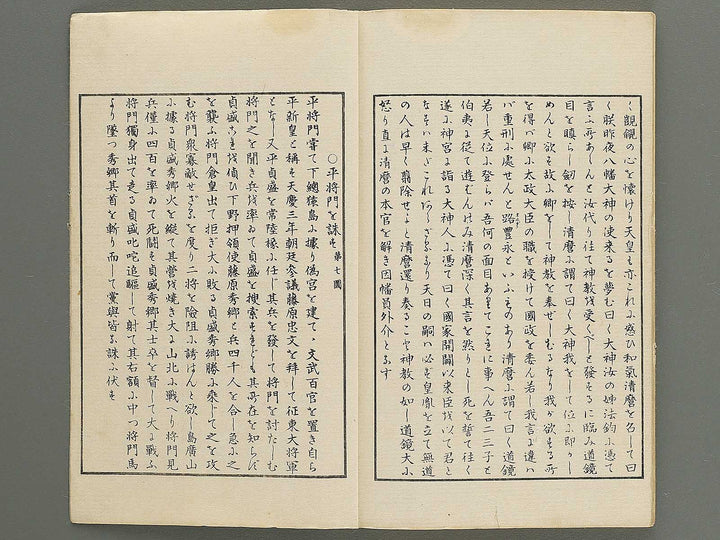 く覬覦の心を懐けり天皇も亦これに惑ひ和氣清麿を召して曰
く朕昨夜八幡大神の使来ると夢む曰く大神汝の姉法鈞に憑て
言ふ所あらんと汝代り往て神教を受くべしと發するに臨み道鏡
目を瞋らし劔を按し清麿に謂て曰く大神我をして位に即かし
めんと欲す故に卿をして神教を奉せしむるなり我が欲する所
を得バ卿に太政大臣の職を授けて國政を委ん若し我言に違ハ
バ重刑に處せんと路豐永といふものあり清麿に謂て曰く道鏡
若し天位に登らバ吾何の面目ありてこれに事へん吾二三子と
伯夷に従て遊むんのみ清麿深く其言を然りとし死を誓て往く
遂に神宮に詣る大神人に憑て曰く國家開闢以来臣を以て君と
なすハ未だこれあらざるなり天日の嗣ハ必ず皇胤を立て無道
の人は早く翦除せよと清麿還り奏すること神教の如し道鏡大に
怒り直に清麿の本官を解き因幡員外介とす
○平將門を誅す 第七圖
平將門嘗て下總猿島に據り偽宮を建て、文武百官を置き自ら
平新皇と稱す天慶三年朝廷参議藤原忠文を拜して征東大將軍
となし又平貞盛を常陸掾に任じ其兵を發して將門を討たしむ
將門之を聞き兵を率ゐて貞盛を搜索すれども其所在を知らず
貞盛これを伐偵ひ下野押領使藤原秀郷と兵四千人を合し急に之
を襲ふ將門倉皇出て拒ぎ大に敗る貞盛秀郷勝に乘じて之を攻
む將門衆寡敵せざるを度り二將を險阻に誘はんと欲し島廣山
に據る貞盛秀郷火を縱て其營を燒き大に山北に戰へり將門見
兵僅に四百を率ゐて死鬪す貞盛秀郷其士卒を督して大に戰ふ
將門獨身出て走る貞盛叱咤追驅して射て其右額に中つ將門馬
より墜つ秀郷其首を斬り而して黨與皆な誅に伏す